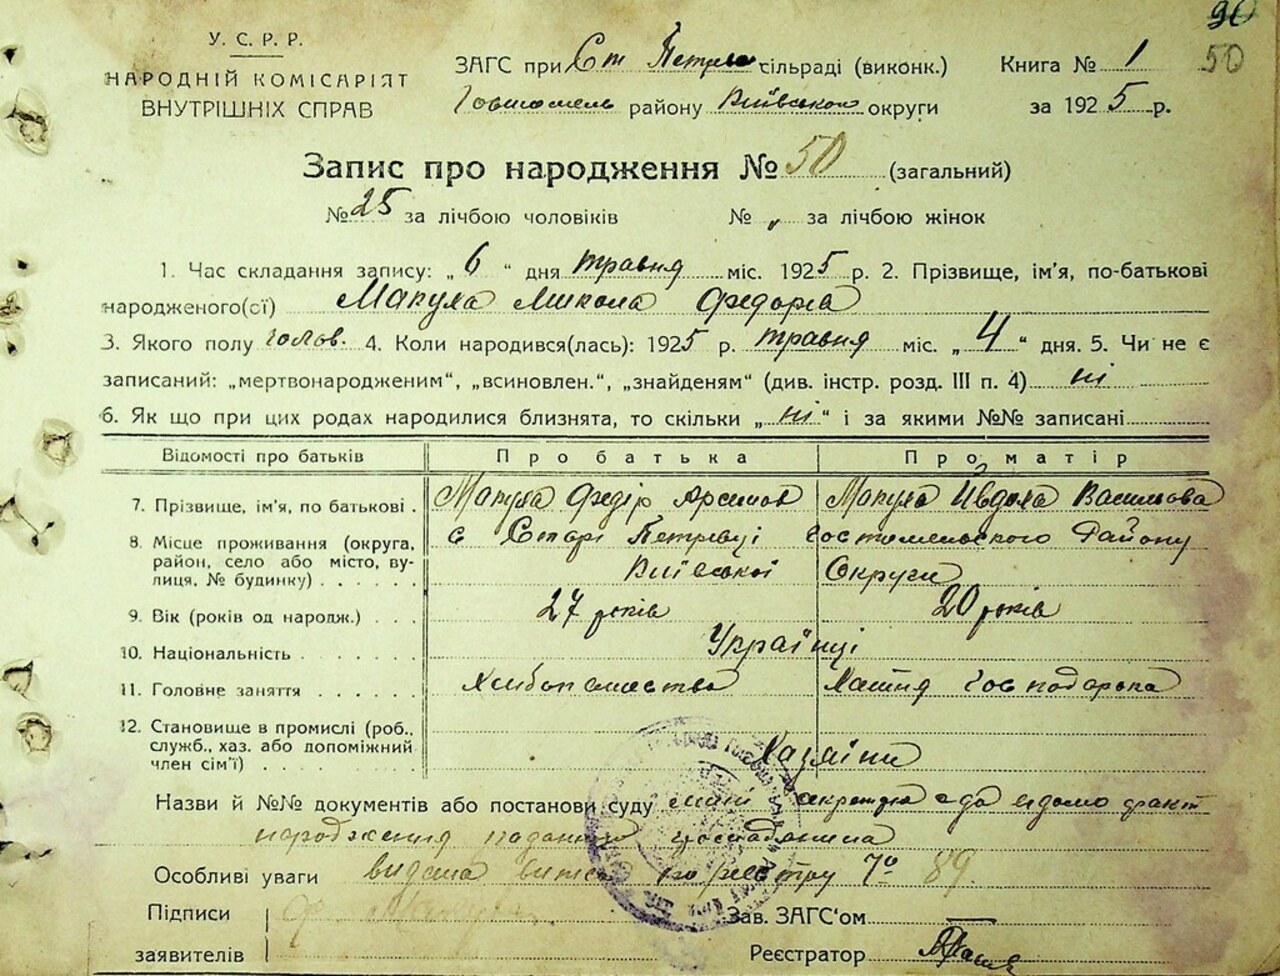 90
50
У. С. Р. Р.
НАРОДНІЙ КОМІСАРІЯТ
ВНУТРІШНІХ СПРАВ
ЗАГС при Ст Петрів сільраді (виконк.)
Гостомель району Київського округи
Книга № 1
за 1925 р.
Запис про народження № 50 (загальний)
№ 25 за лічбою чоловіків № „ за лічбою жінок
1. Час складання запису: „ 6 “ дня травня міс. 1925 р. 2. Прізвище, ім'я, по-батькові
народженого(сї) Макуха Микола Федорів
3. Якого полу чолов. 4. Коли народився(лась): 1925 р. травня міс. „ 4 “ дня. 5. Чи не є
записаний: „мертвонародженим“, „всиновлен.“, „знайденям“ (див. інстр. розд. III п. 4) ні
6. Як що при цих родах народилися близнята, то скільки „ ні “ і за якими №№ записані
Відомості про батьків Про батька Про матір
7. Прізвище, ім'я, по батькові . Макуха Федір Арсенов Макуха Ивдоха Василіова
8. Місце проживання (округа, с Старі Петрівці Гостомельского Району
район, село або місто, ву-
лиця, № будинку) Київської Округи
9. Вік (років од народж.) . . . 27 років 20 років
10. Національність Українці
11. Головне заняття Хлибопашество Хатня господарка
12. Становище в промислі (роб.,
служб., хаз. або допоміжний
член сім'ї) Хазяїни
Назви й №№ документів або постанови суду факт
народження громадянина
Особливі уваги видана по реєстру № 89
Підписи
заявителів
Зав. ЗАГС'ом
Реєстратор